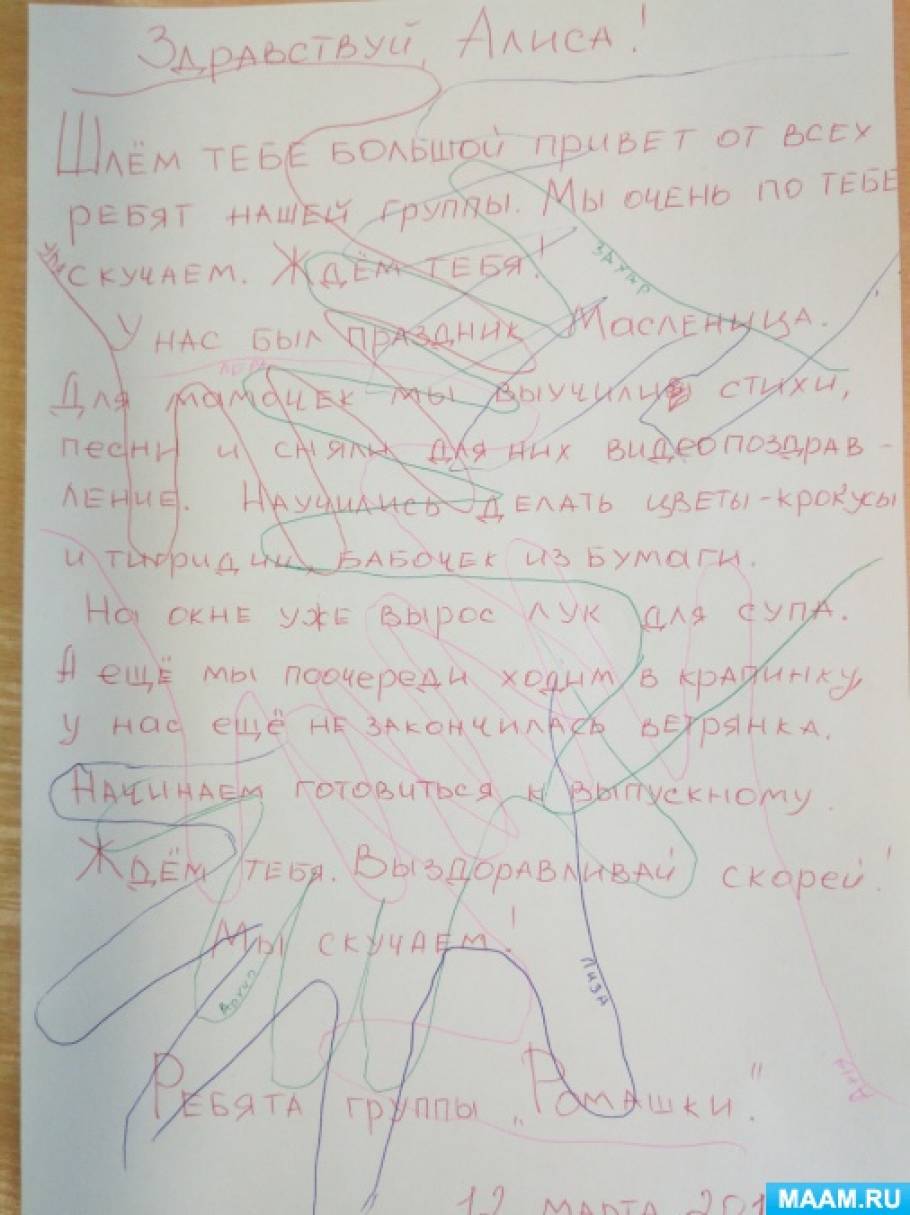 Здравствуй, Алиса!
Шлём тебе большой привет от всех
ребят нашей группы. Мы очень по тебе
скучаем. Ждём тебя!
Захар
У нас был праздник Масленица.
Для мамочек мы выучили стихи,
песни и сняли для них видеопоздрав-
ление. Научились делать цветы-крокусы
и тигридии, бабочек из бумаги.
На окне уже вырос лук для супа.
А ещё мы поочереди ходим в крапинку,
у нас ещё не закончилась ветрянка.
Начинаем готовиться к выпускному.
Ждём тебя. Выздоравливай скорей!
Мы скучаем!
Архип
Лиза
Ребята группы „Ромашки."
12 марта 201
MAAM.RU